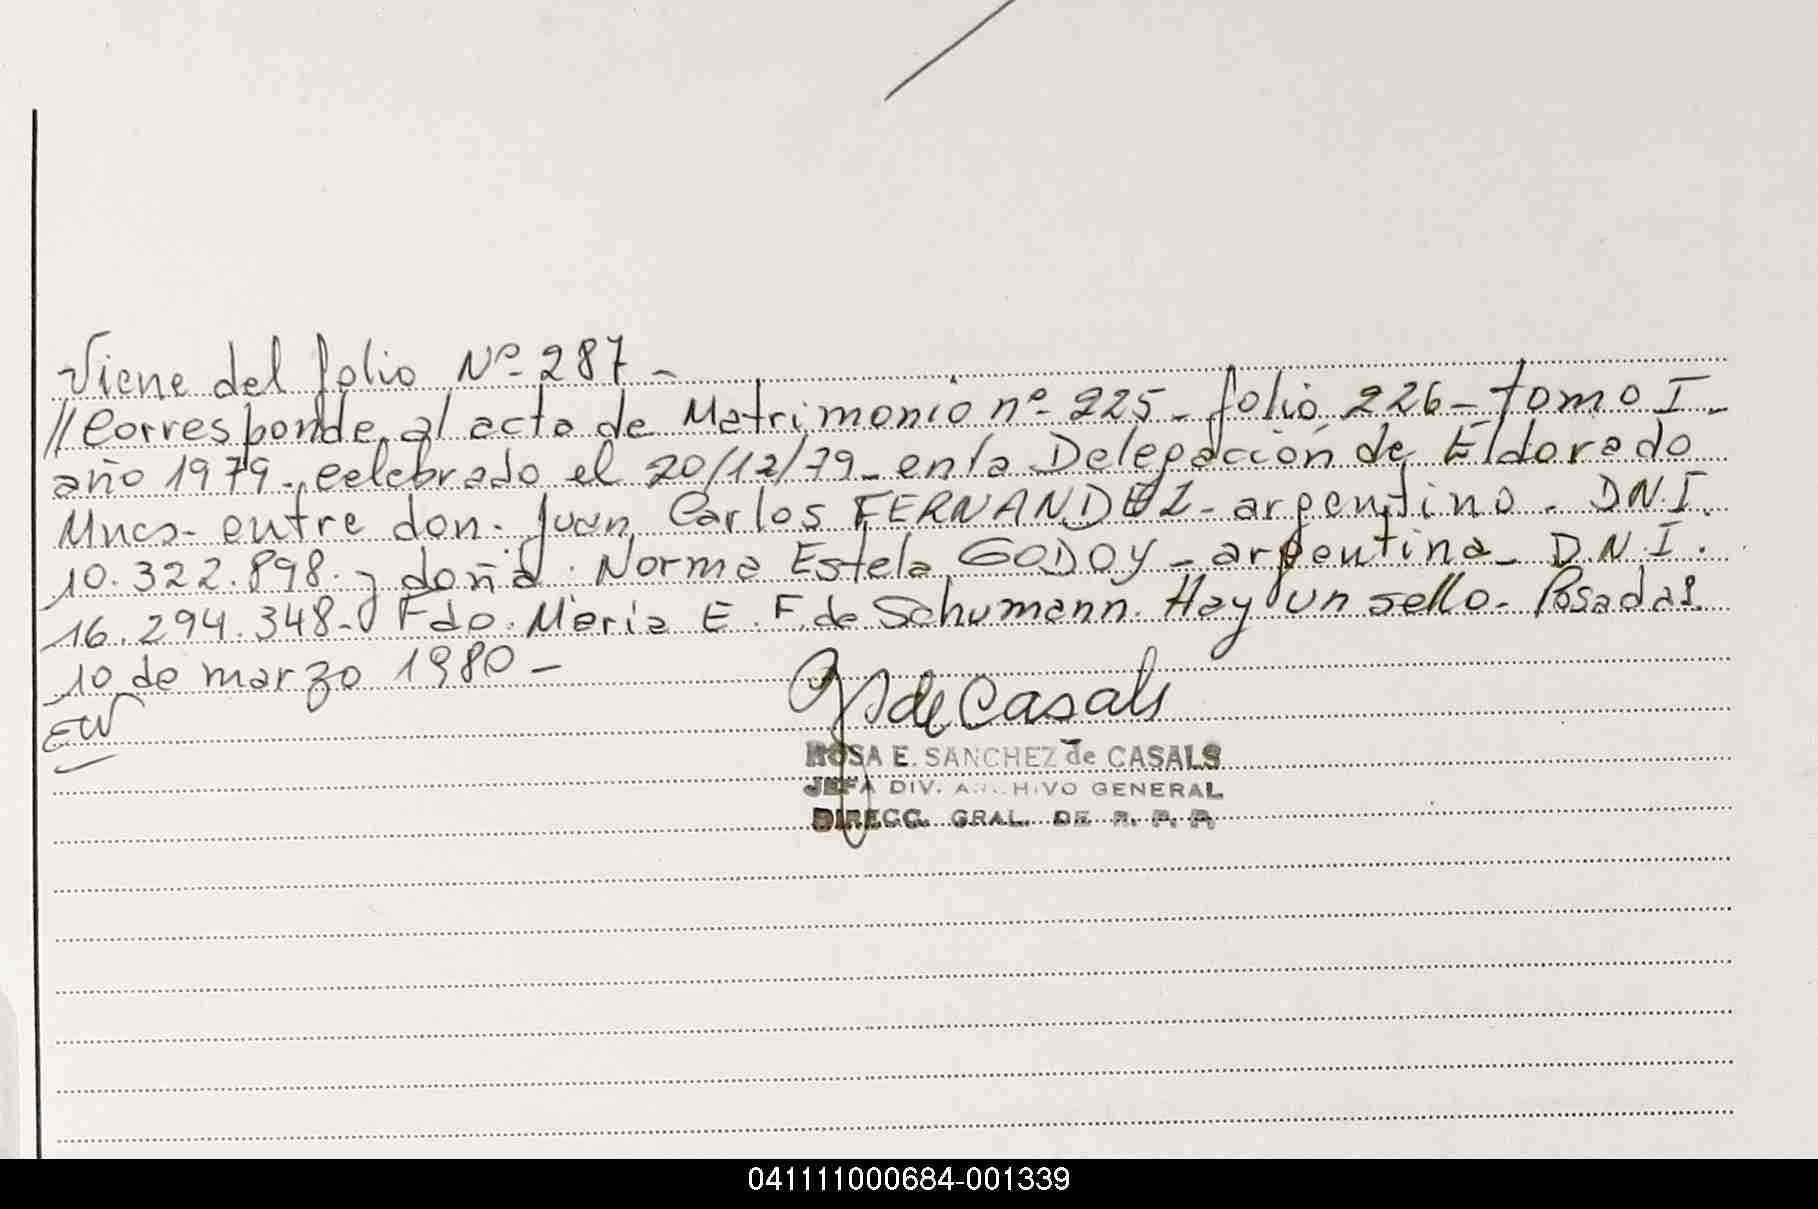 Viene del folio Nº 287 -
// Corresponde al acta de Matrimonio nº 225 - folio 226 - tomo I -
año 1979 - celebrado el 20/12/79 - en la Delegación de Eldorado
Mnes - entre don. Juan Carlos FERNANDEZ - argentino - D.N.I.
10.322.898. y doña Norma Estela GODOY - argentina - D.N.I.
16.294.348 - Fdo. Maria E. F. de Schumann. Hay un sello - Posadas.
10 de marzo 1980 -
EW
de Casals
ROSA E. SANCHEZ de CASALS
JEFA DIV. ARCHIVO GENERAL
DIRECC. GRAL. DE R. P. P.
041111000684-001339